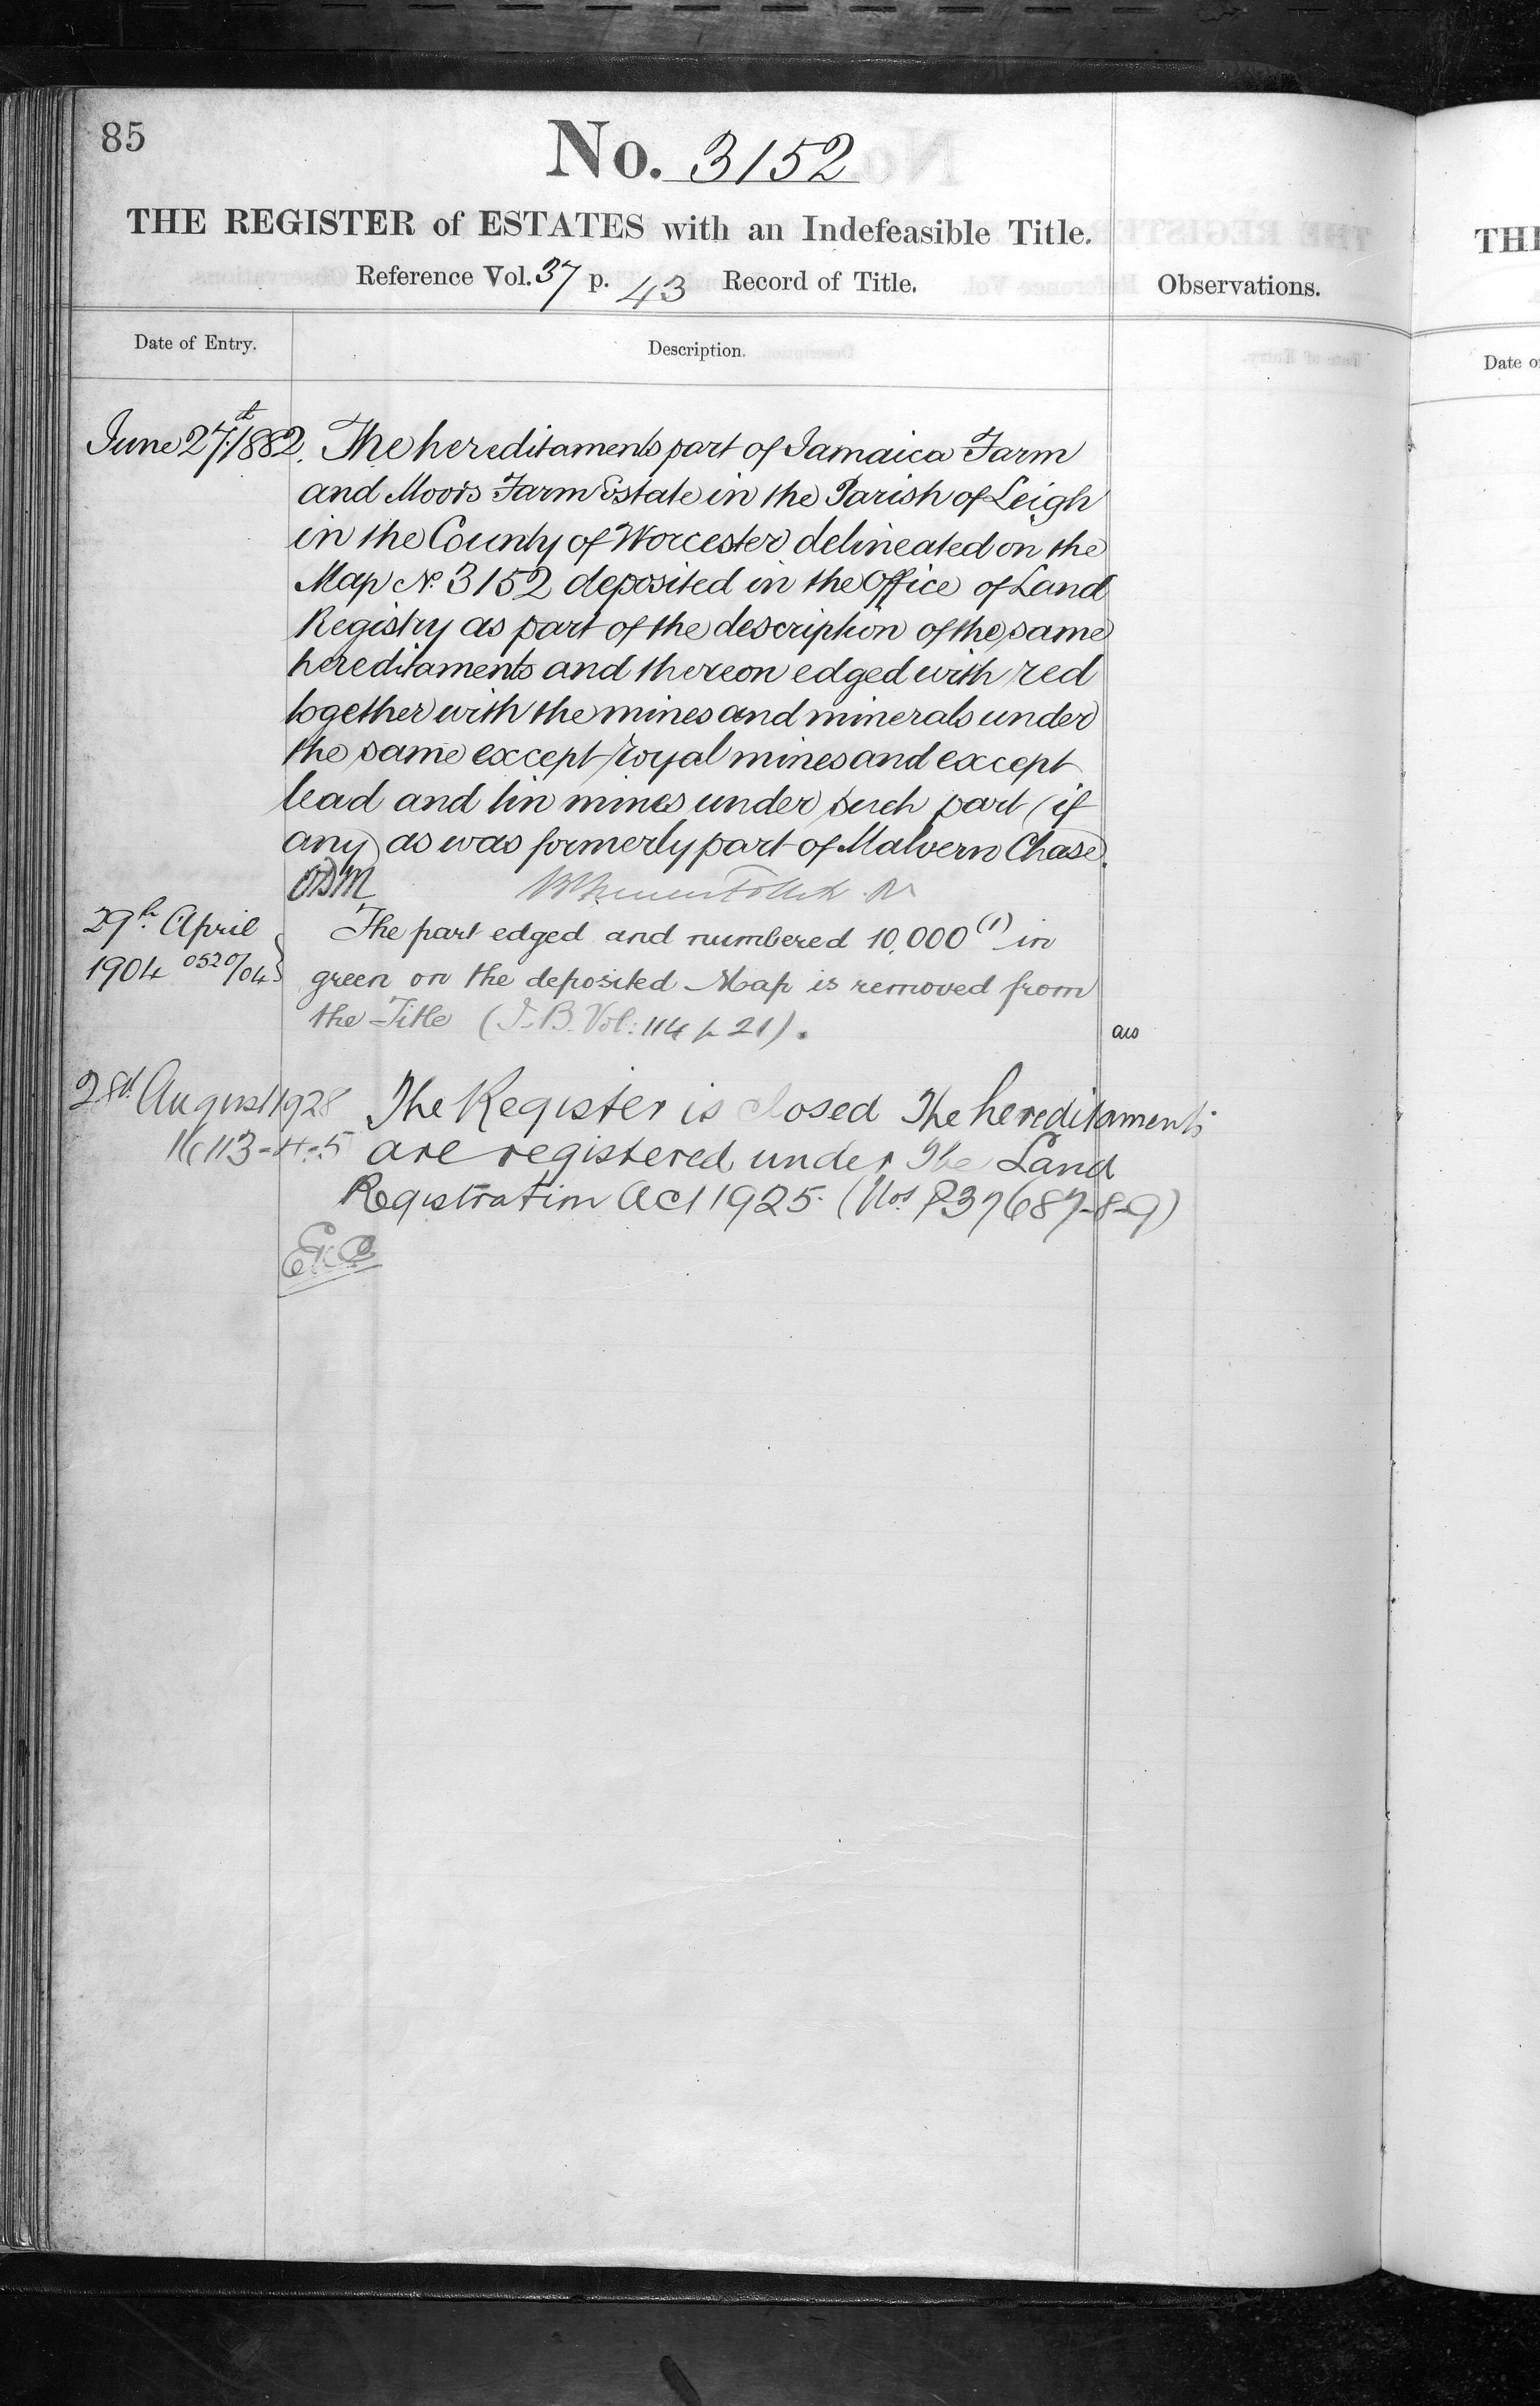 85
No. 3152
THE REGISTER of ESTATES with an Indefeasible Title.
Reference Vol. 37 p. 43 Record of Title.
Observations.
Date of Entry.
Description.
June 27th 1882. The hereditaments part of Jamaica Farm
and Moors Farm Estate in the Parish of Leigh
in the County of Worcester delineated on the
Map No. 3152 deposited in the Office of Land
Registry as part of the description of the same
hereditaments and thereon edged with red
together with the mines and minerals under
the same except royal mines and except
lead and tin mines under such part (if
any) as was formerly part of Malvern Chase.
29th April
1904 0520/04
The part edged and numbered 10,000 (1) in
green on the deposited Map is removed from
the Title (I.B. Vol: 114 p 21).
August 1928 The Register is closed The hereditaments
are registered under The Land
Registration Act 1925. (Nos P37687-8-9)
TH
Date o